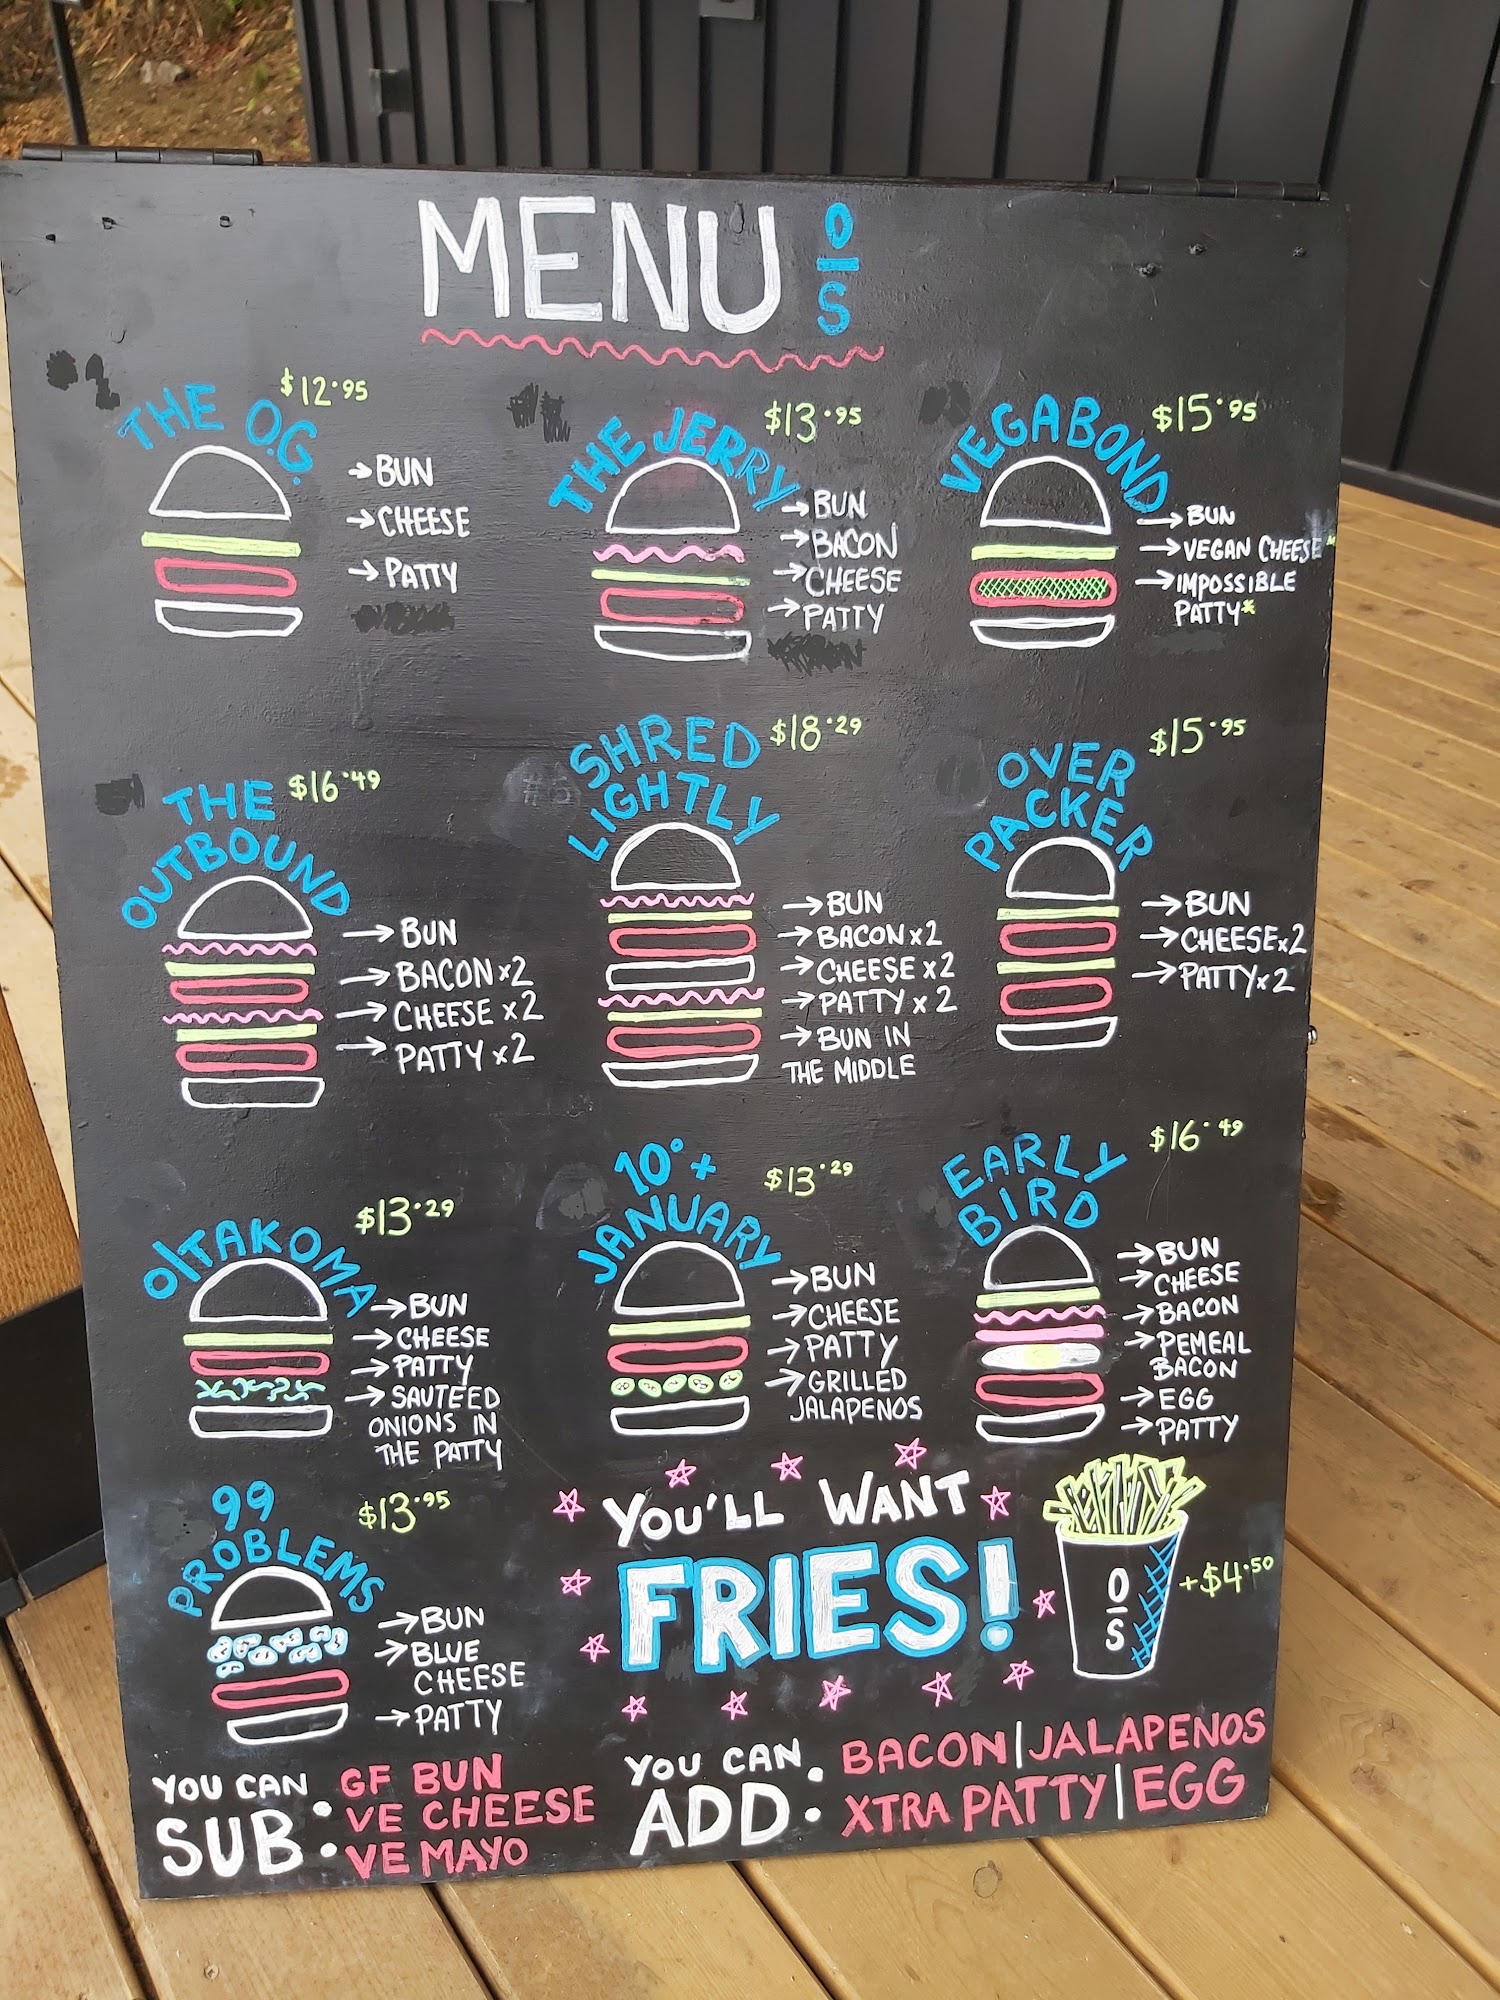 MENU O/S
THE O.G.
$12.95
→BUN
→CHEESE
→PATTY
THE JERRY
$13.95
→BUN
→BACON
→CHEESE
→PATTY
VEGABOND
$15.95
→BUN
→VEGAN CHEESE
→IMPOSSIBLE
PATTY*
THE
OUTBOUND
$16.49
→BUN
→BACON x2
→CHEESE x2
→PATTY x2
SHRED
LIGHTLY
$18.29
→BUN
→BACON x2
→CHEESE x2
→PATTY x2
→BUN IN
THE MIDDLE
OVER
PACKER
$15.95
→BUN
→CHEESE x2
→PATTY x2
O/TAKOMA
$13.29
→BUN
→CHEESE
→PATTY
→SAUTEED
ONIONS IN
THE PATTY
10°+
JANUARY
$13.29
→BUN
→CHEESE
→PATTY
→GRILLED
JALAPENOS
EARLY
BIRD
$16.49
→BUN
→CHEESE
→BACON
→PEMEAL
BACON
→EGG
→PATTY
99
PROBLEMS
$13.95
→BUN
→BLUE
CHEESE
→PATTY
YOU'LL WANT
FRIES!
O/S
+$4.50
YOU CAN
SUB:
GF BUN
VE CHEESE
VE MAYO
YOU CAN
ADD:
BACON|JALAPENOS
XTRA PATTY|EGG